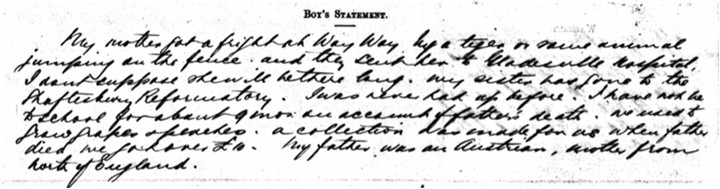 BOY'S STATEMENT.
My mother got a fright at Way Way by a tiger or some animal
jumping on the fence. and they sent her to Gladesville Hospital.
I dont suppose she will be there long. my sister has gone to the
Shaftesbury Reformatory. I was never had up before. I have not be
to school for about 9 mos: on account of father's death. we used to
grow grapes & peaches. a collection was made for us when father
died we got over £10. My father was an Austrian, mother from
north of England.